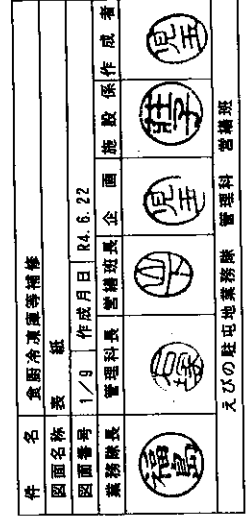 件 名 食厨冷凍庫等補修
図面名称 表 紙
図面番号 1/9 作成月日 R4.6.22
業務隊長 管理科長 営繕班長 企 画 施 設 係 作 成 者
福島 石塚 山下 児玉 荘子 児玉
えびの駐屯地業務隊 管理科 営繕班